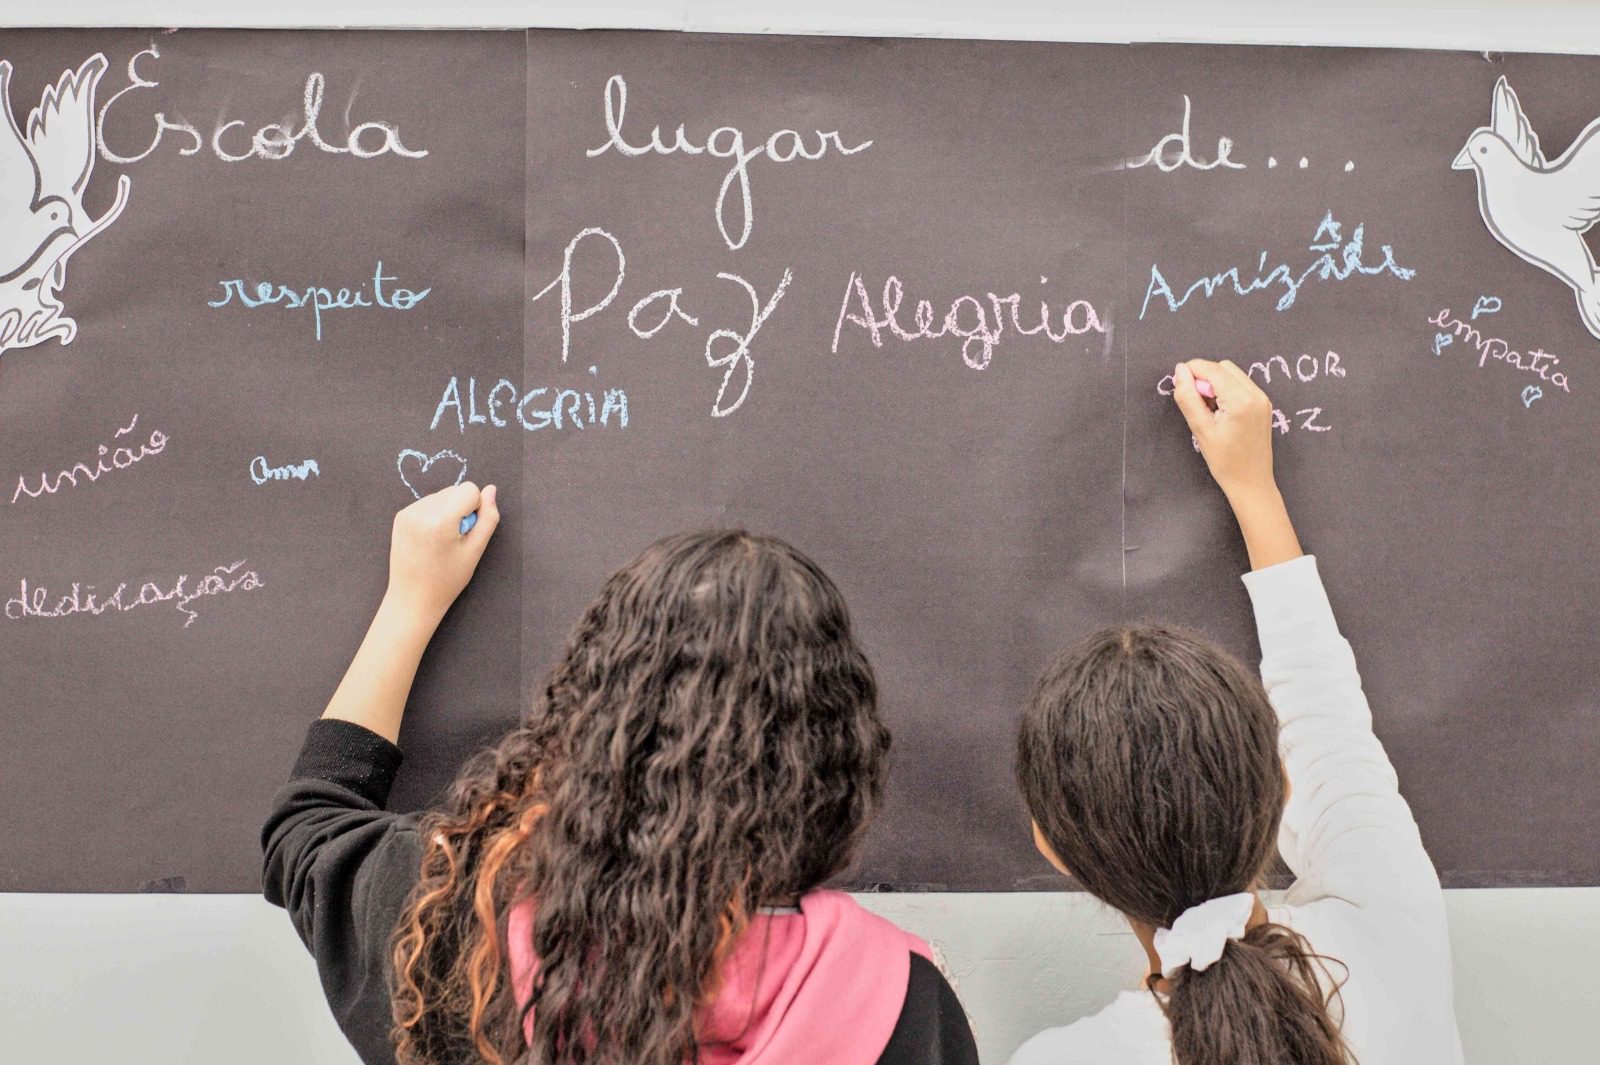 Escola lugar de...
respeito Paz Alegria Amizâde
empatia
paz
ALEGRIA
aMOR
união
amor
AZ
dedicação